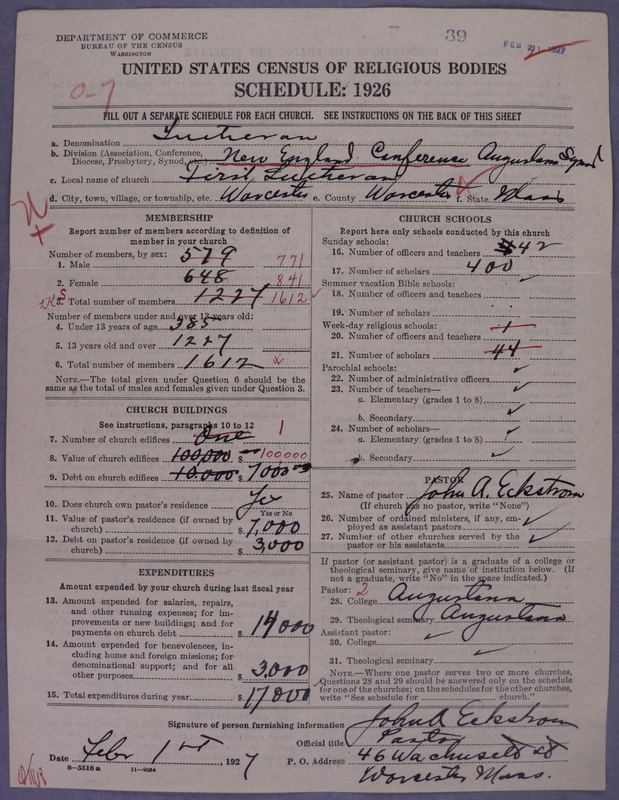 DEPARTMENT OF COMMERCE
BUREAU OF THE CENSUS
WASHINGTON
39
FEB 21 1927
UNITED STATES CENSUS OF RELIGIOUS BODIES
SCHEDULE: 1926
0-7
FILL OUT A SEPARATE SCHEDULE FOR EACH CHURCH. SEE INSTRUCTIONS ON THE BACK OF THIS SHEET
a. Denomination Lutheran
b. Division (Association, Conference, Diocese, Presbytery, Synod, etc.) New England Conference Augustana Synod
c. Local name of church First Lutheran
d. City, town, village, or township, etc. Worcester e. County Worcester f. State Mass
MEMBERSHIP
Report number of members according to definition of
member in your church
Number of members, by sex:
1. Male 579 771
2. Female 648 841
3. Total number of members 1227 1612
Number of members under and over 13 years old:
4. Under 13 years of age 385
5. 13 years old and over 1227
6. Total number of members 1612
NOTE.—The total given under Question 6 should be the
same as the total of males and females given under Question 3.
CHURCH BUILDINGS
See instructions, paragraphs 10 to 12
7. Number of church edifices One 1
8. Value of church edifices 100,000 $ 100000
9. Debt on church edifices 10.000 $ 7000
10. Does church own pastor's residence Yes
Yes or No
11. Value of pastor's residence (if owned by
church) $ 7,000
12. Debt on pastor's residence (if owned by
church) $ 3,000
EXPENDITURES
Amount expended by your church during last fiscal year
13. Amount expended for salaries, repairs,
and other running expenses; for im-
provements or new buildings; and for
payments on church debt $ 14000
14. Amount expended for benevolences, in-
cluding home and foreign missions; for
denominational support; and for all
other purposes $ 3,000
15. Total expenditures during year $ 17000
CHURCH SCHOOLS
Report here only schools conducted by this church
Sunday schools:
16. Number of officers and teachers 42
17. Number of scholars 400
Summer vacation Bible schools:
18. Number of officers and teachers
19. Number of scholars
Week-day religious schools:
20. Number of officers and teachers 1
21. Number of scholars 44
Parochial schools:
22. Number of administrative officers
23. Number of teachers—
a. Elementary (grades 1 to 8)
b. Secondary
24. Number of scholars—
a. Elementary (grades 1 to 8)
b. Secondary
PASTOR
25. Name of pastor John A. Eckstrom
(If church has no pastor, write "None")
26. Number of ordained ministers, if any, em-
ployed as assistant pastors
27. Number of other churches served by the
pastor or his assistants
If pastor (or assistant pastor) is a graduate of a college or
theological seminary, give name of institution below. (If
not a graduate, write "No" in the space indicated.)
Pastor: 2
28. College Augustana
29. Theological seminary Augustana
Assistant pastor:
30. College
31. Theological seminary
NOTE.—Where one pastor serves two or more churches,
Questions 28 and 29 should be answered only on the schedule
for one of the churches; on the schedules for the other churches,
write "See schedule for church."
Signature of person furnishing information John A Eckstrom
Official title Pastor
Date Febr 1st, 1927 P. O. Address 46 Wachusett St
Worcester Mass.
8—5518 a 11—9084